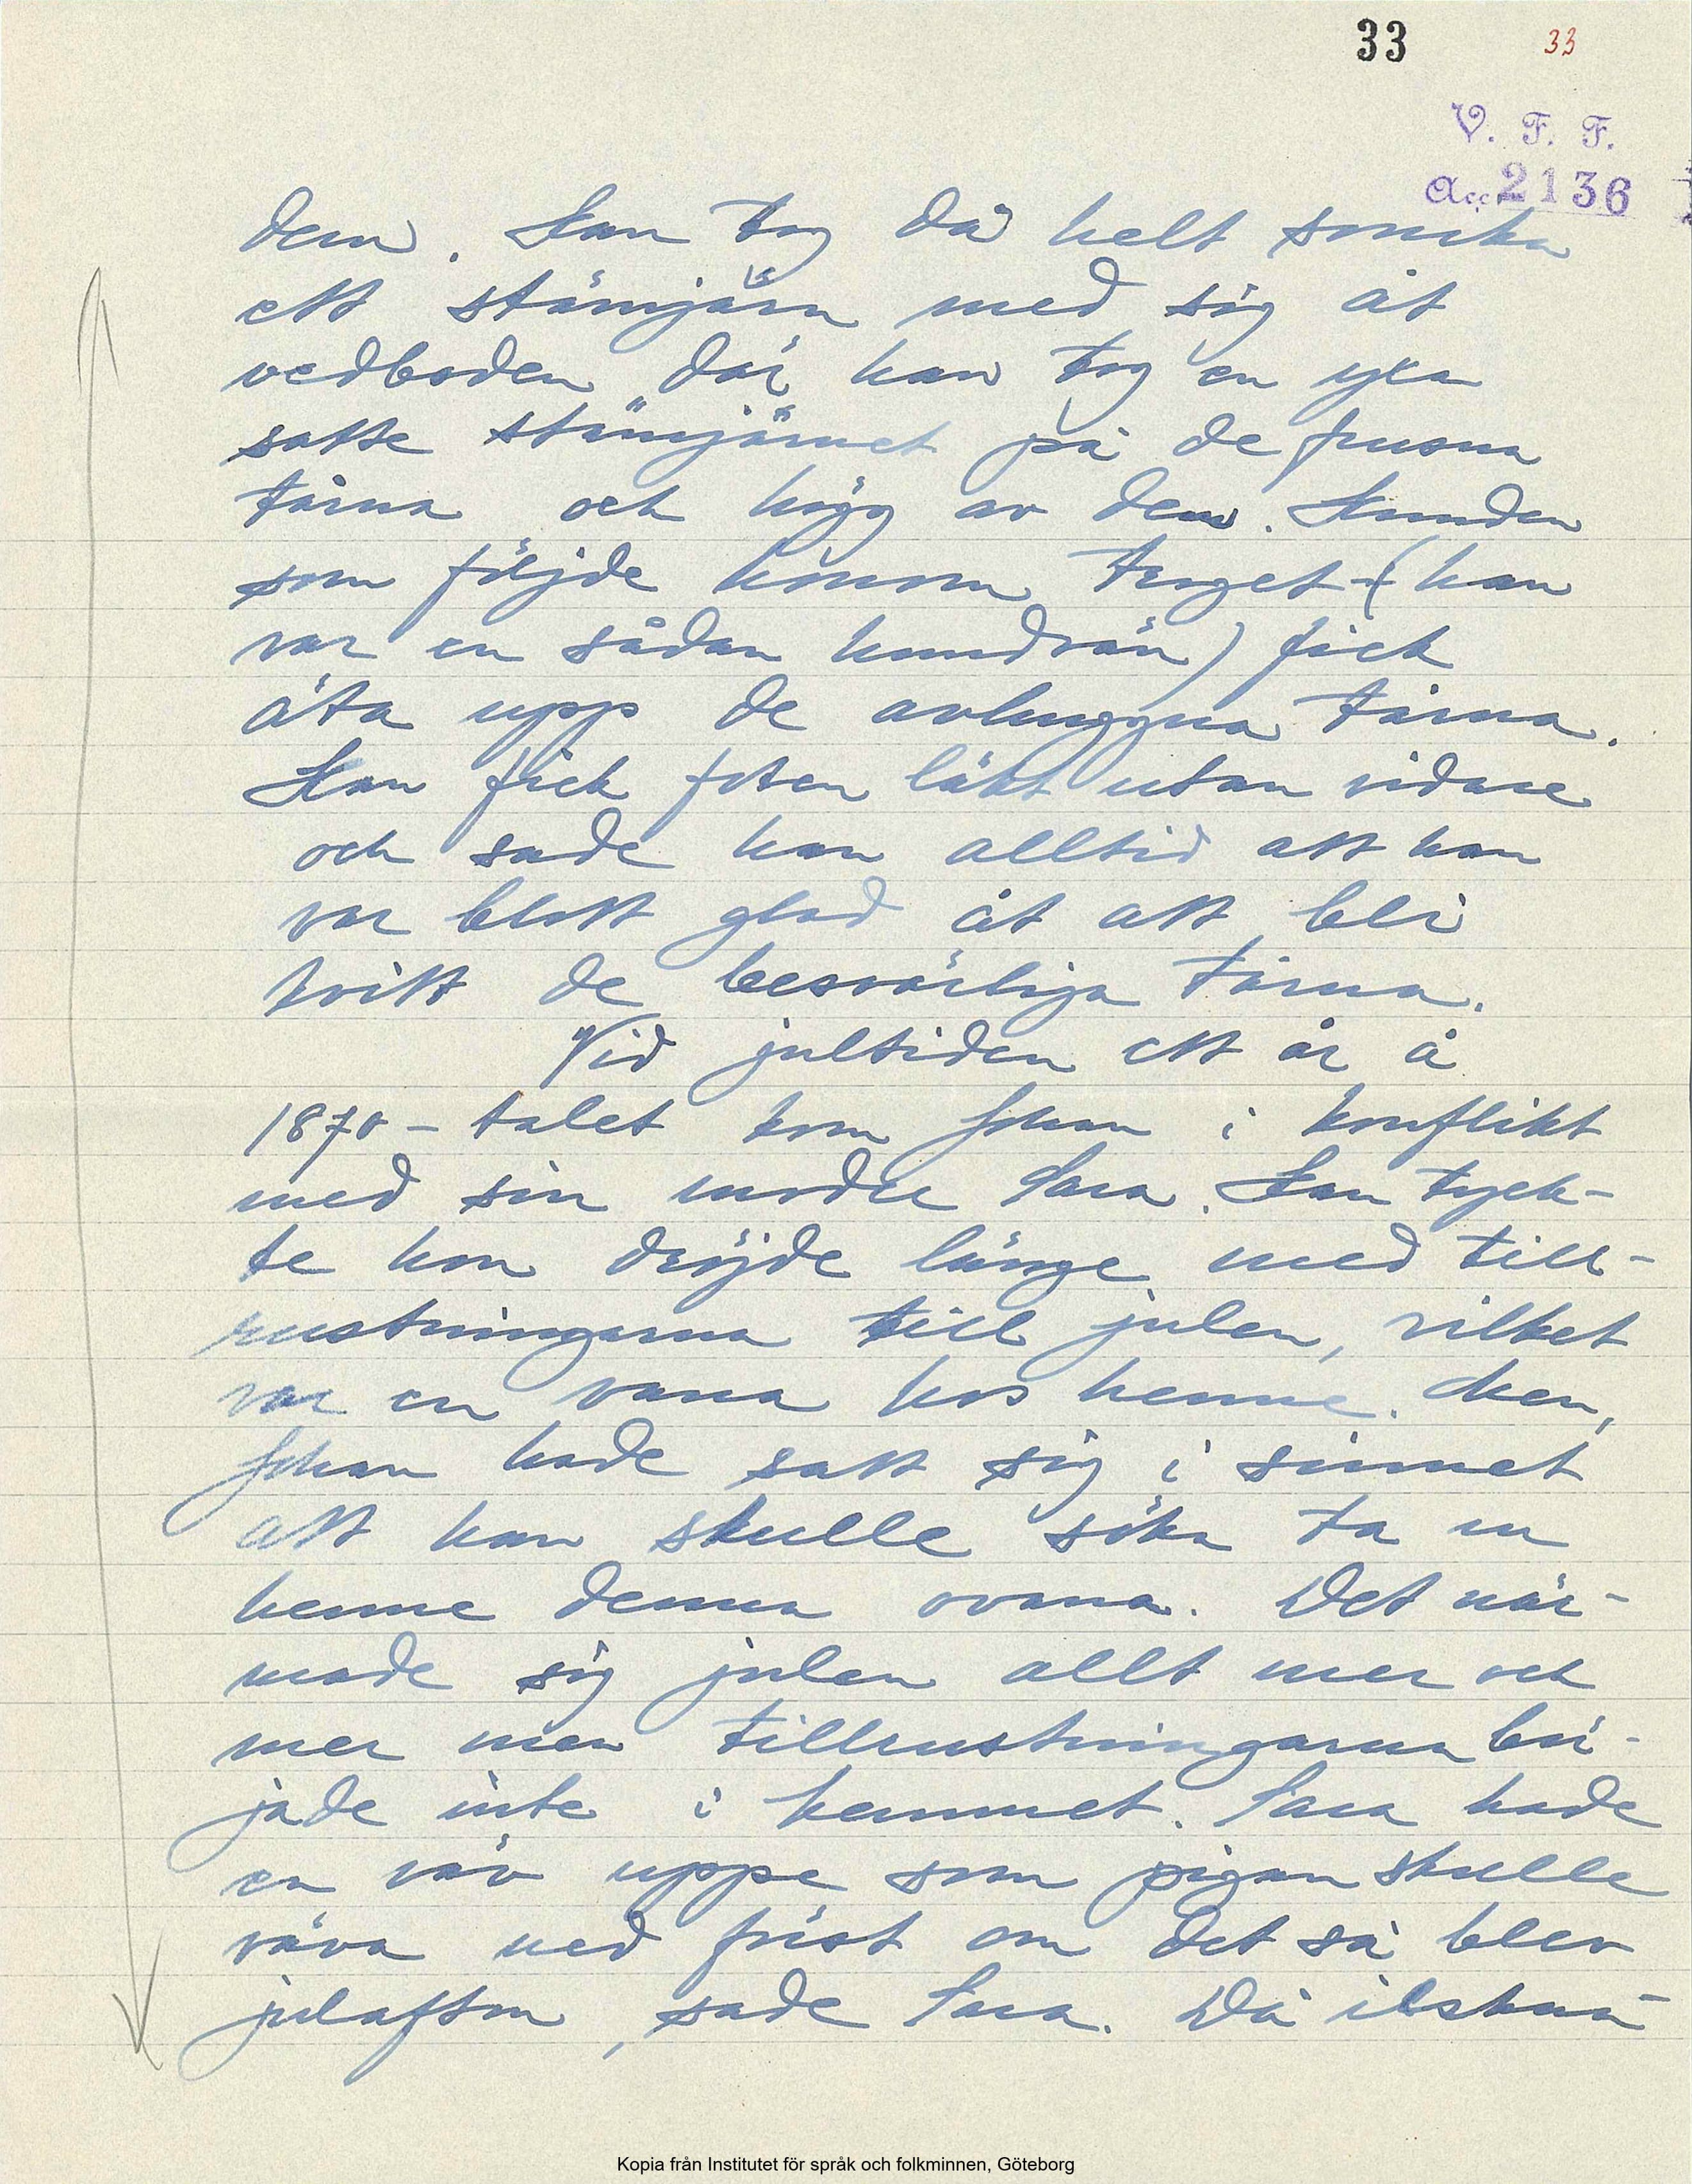 33 33
V. F. F.
Acc. 2136
dem. Han tog då helt sonika
ett stämjärn med sig åt
vedboden där han tog en yxa
satte stämjärnet på de frusna
tårna och högg av dem. Hunden
som följde honom troget (han
var en sådan hundvän) fick
äta upp de avhuggna tårna.
Han fick foten läkt utan vidare
och sade han alltid att han
var blott glad åt att bli
kvitt de besvärliga tårna.
Vid jultiden ett år å
1870-talet kom Johan i konflikt
med sin moder Sara. Han tyck-
te hon dröjde länge med till-
rustningarna till julen, vilket
var en vana hos henne. Men,
Johan hade satt sig i sinnet
att han skulle söka ta ur
henne denna ovana. Det när-
made sig julen allt mer och
mer men tillrustningarna bör-
jade inte i hemmet. Sara hade
en väv uppe som pigan skulle
väva ned först om det så blev
julafton, sade Sara. Då ilskna-
Kopia från Institutet för språk och folkminnen, Göteborg